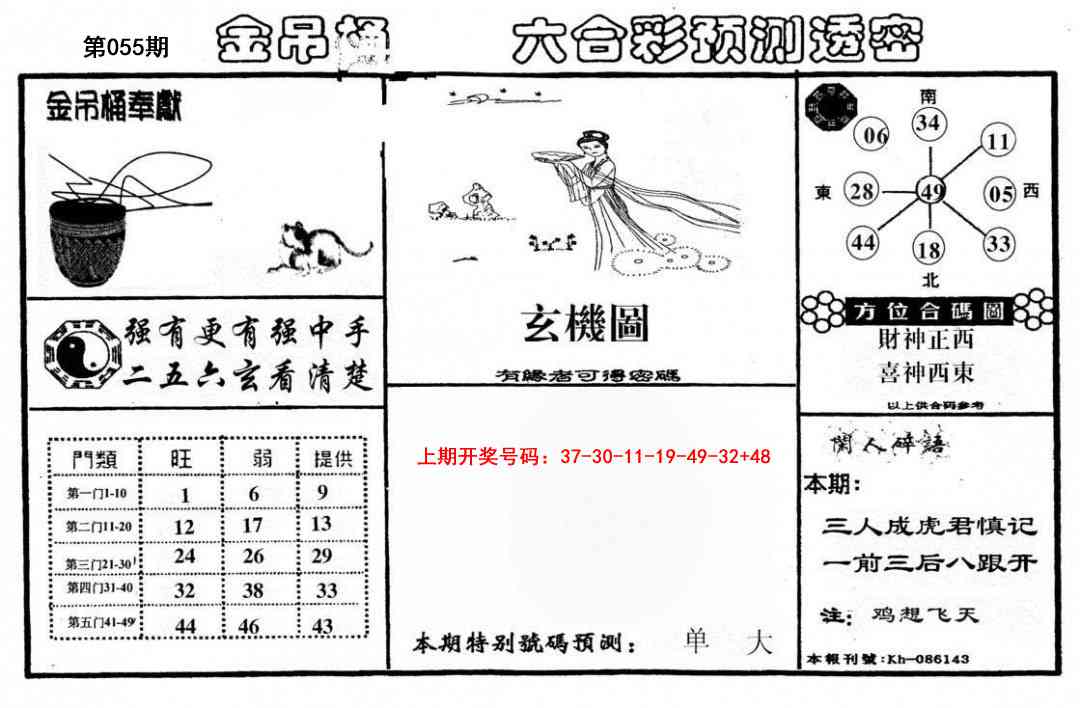 第055期
金吊桶
六合彩预测透密
金吊桶奉獻
强有更有强中手
二五六玄看清楚
門類 旺 弱 提供
第一门1-10 1 6 9
第二门11-20 12 17 13
第三门21-30 24 26 29
第四门31-40 32 38 33
第五门41-49 44 46 43
玄機圖
有緣者可得密碼
上期开奖号码：37-30-11-19-49-32+48
本期特别號碼預測：
单 大
南
06 34 11
東 28 49 05 西
44 18 33
北
方位合碼圖
財神正西
喜神西東
以上供合码参考
閑人碎語
本期：
三人成虎君慎记
一前三后八跟开
注：鸡想飞天
本報刊號：Kh—086143